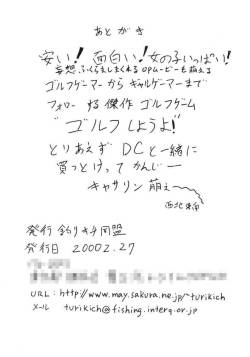 あとがき
安い! 面白い! 女の子いっぱい!
妄想ふくらましまくれるOPムービーも萌える
ゴルフゲーマーからギャルゲーマーまで
フォローする傑作ゴルフゲーム
"ゴルフしようよ!"
とりあえずDCと一緒に
買っとけってかんじー
キャサリン萌え〜
発行 釣りキチ同盟
発行日 2000 2.27
URL:http://www.may.sakura.ne.jp/~turikich
メール turikich@fishing.interq.or.jp